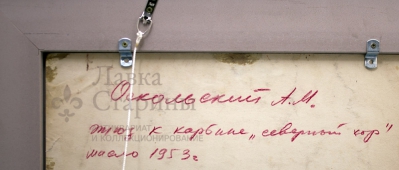 Лавка
Старины
Окольский А.М.
этюд к картине „северный хор"
масло 1953 г
И КОЛЛЕКЦИОНИРОВАНИЕ